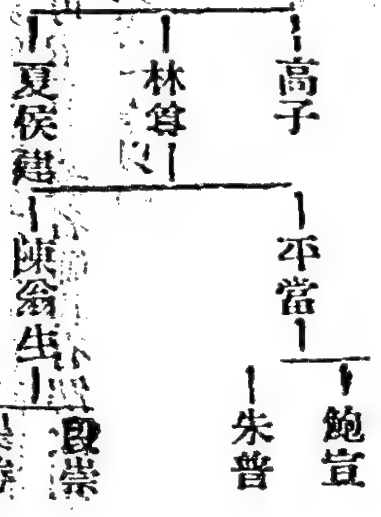 高子
林尊
夏侯建
平當
陳翁生
鮑宣
朱普
殷崇